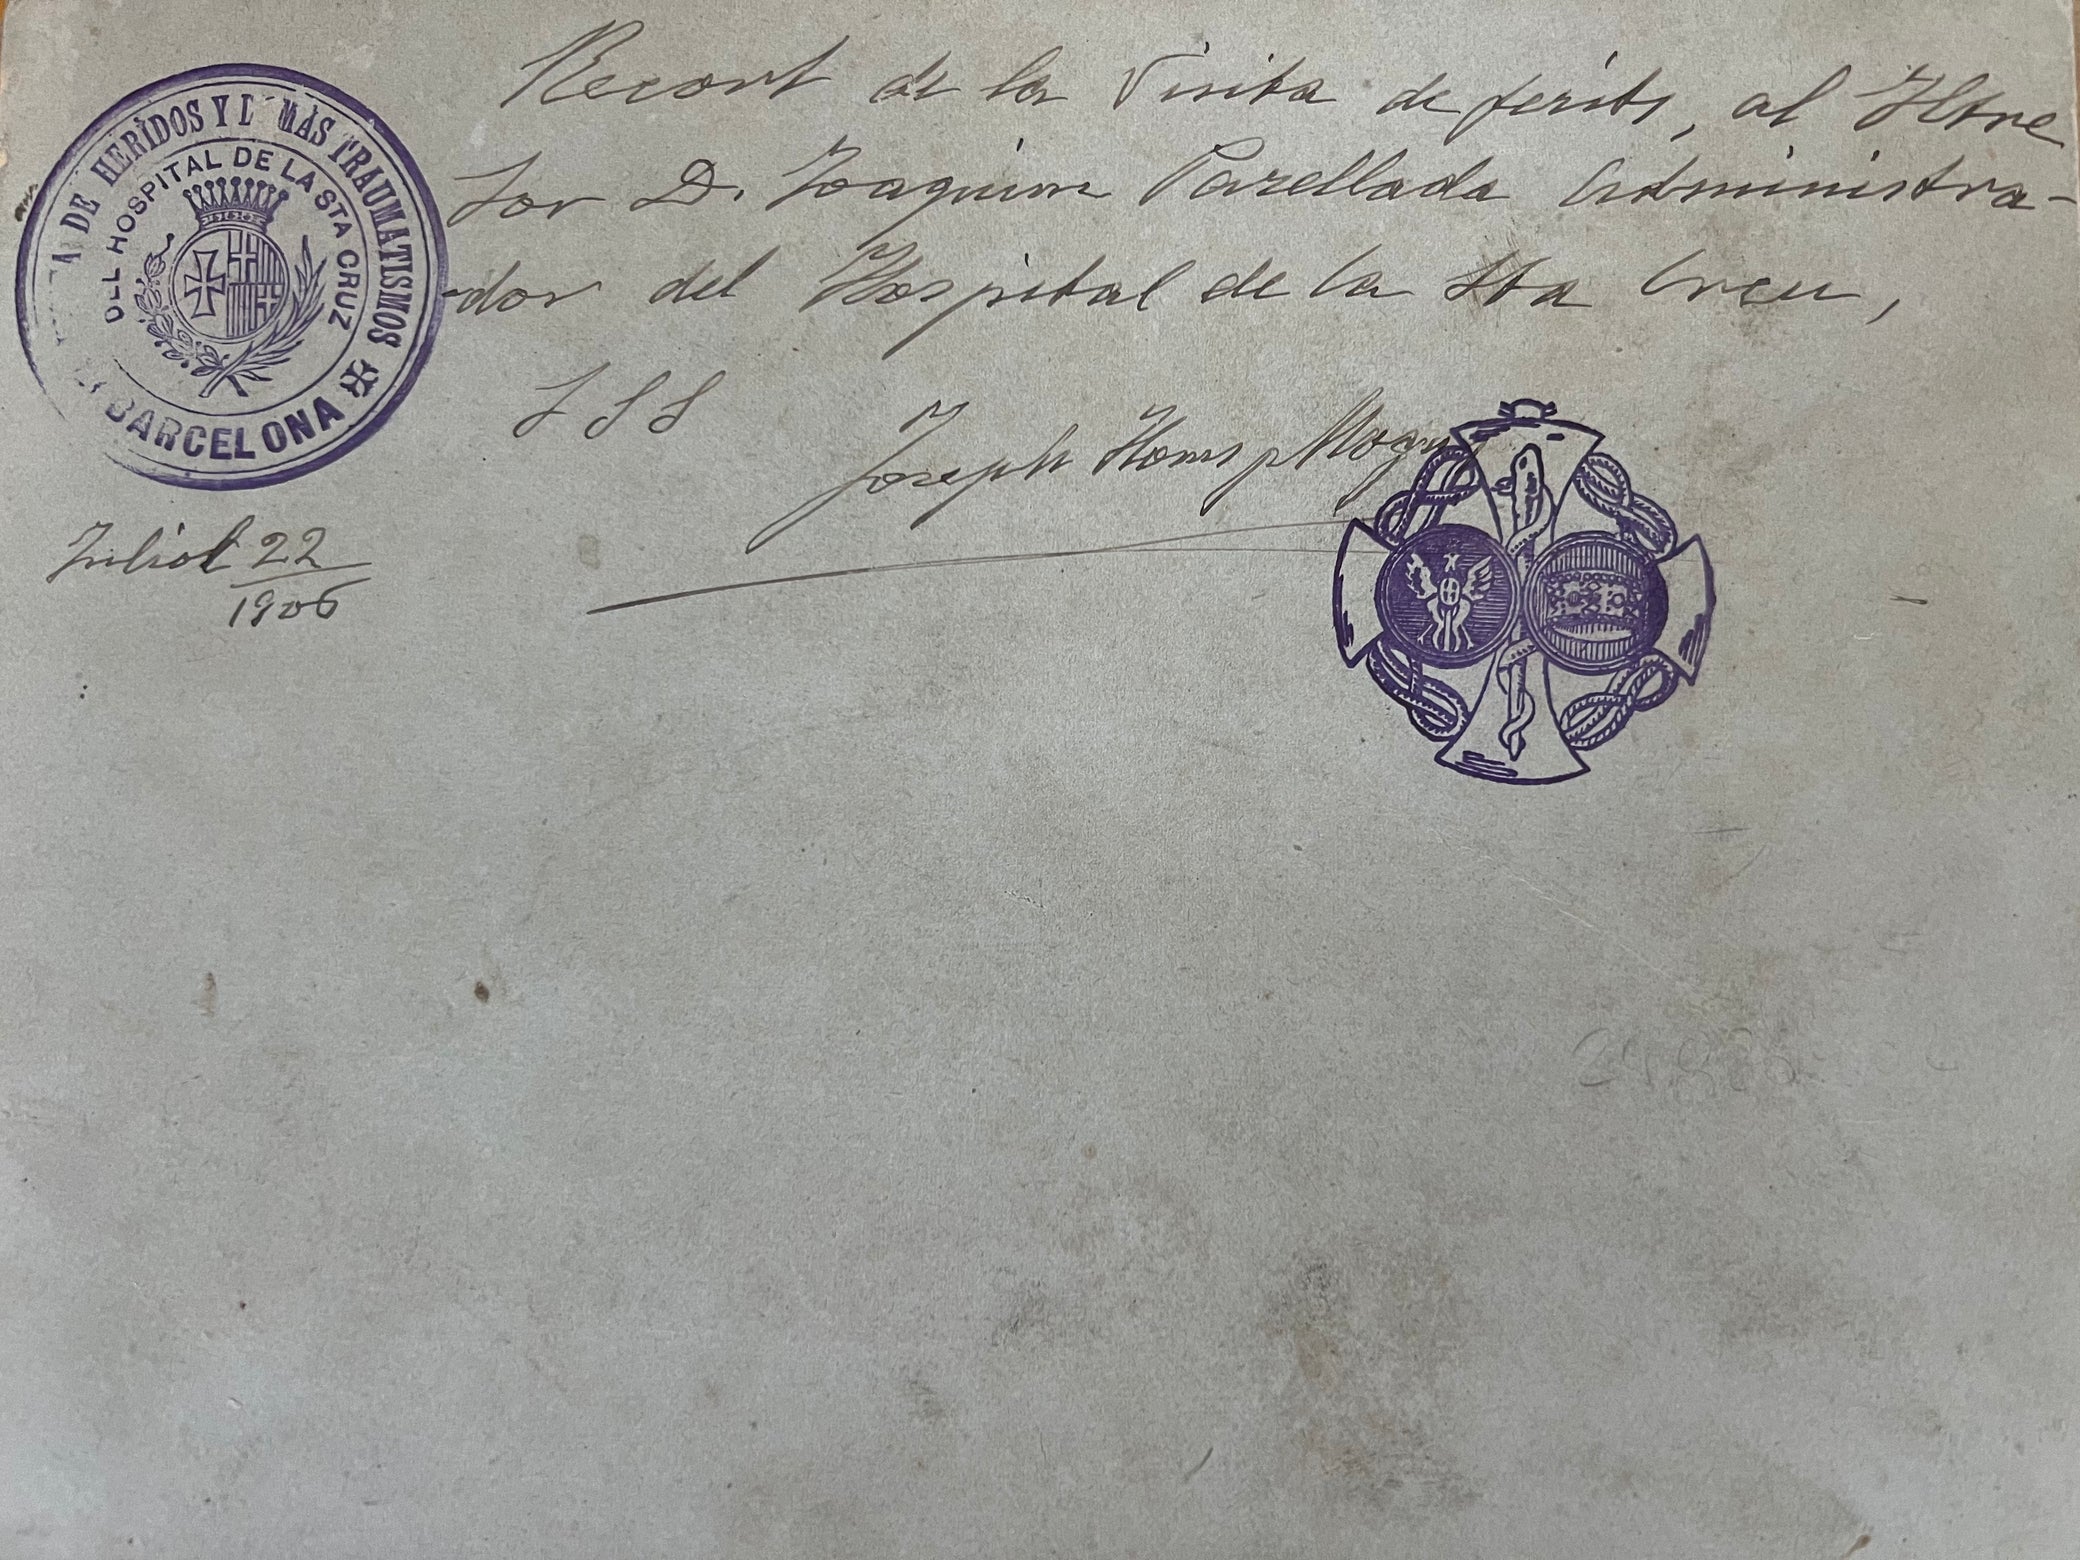 Recort de la Visita de ferits, al Iltre
Sor D. Joaquim Parellada Administra-
-dor del Hospital de la Sta Creu,
SSS
Joseph Homs p Mogu
Juliol 22
1906
DE HERIDOS Y DEMÁS TRAUMATISMOS
DEL HOSPITAL DE LA STA CRUZ
BARCELONA